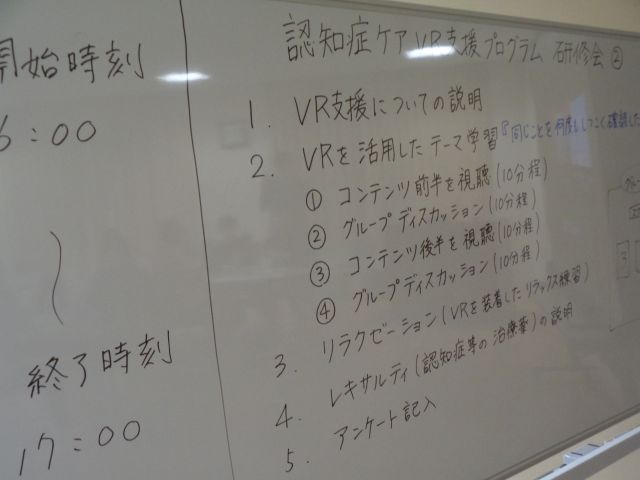 開始時刻
6:00
終了時刻
17:00
認知症ケアVR支援プログラム 研修会②
1. VR支援についての説明
2. VRを活用したテーマ学習『同じことを何度もしつこく確認した
① コンテンツ前半を視聴(10分程)
② グループディスカッション(10分程)
③ コンテンツ後半を視聴(10分程)
④ グループディスカッション(10分程)
3. リラクゼーション(VRを装着したリラックス練習)
4. レキサルティ(認知症等の治療薬)の説明
5. アンケート記入